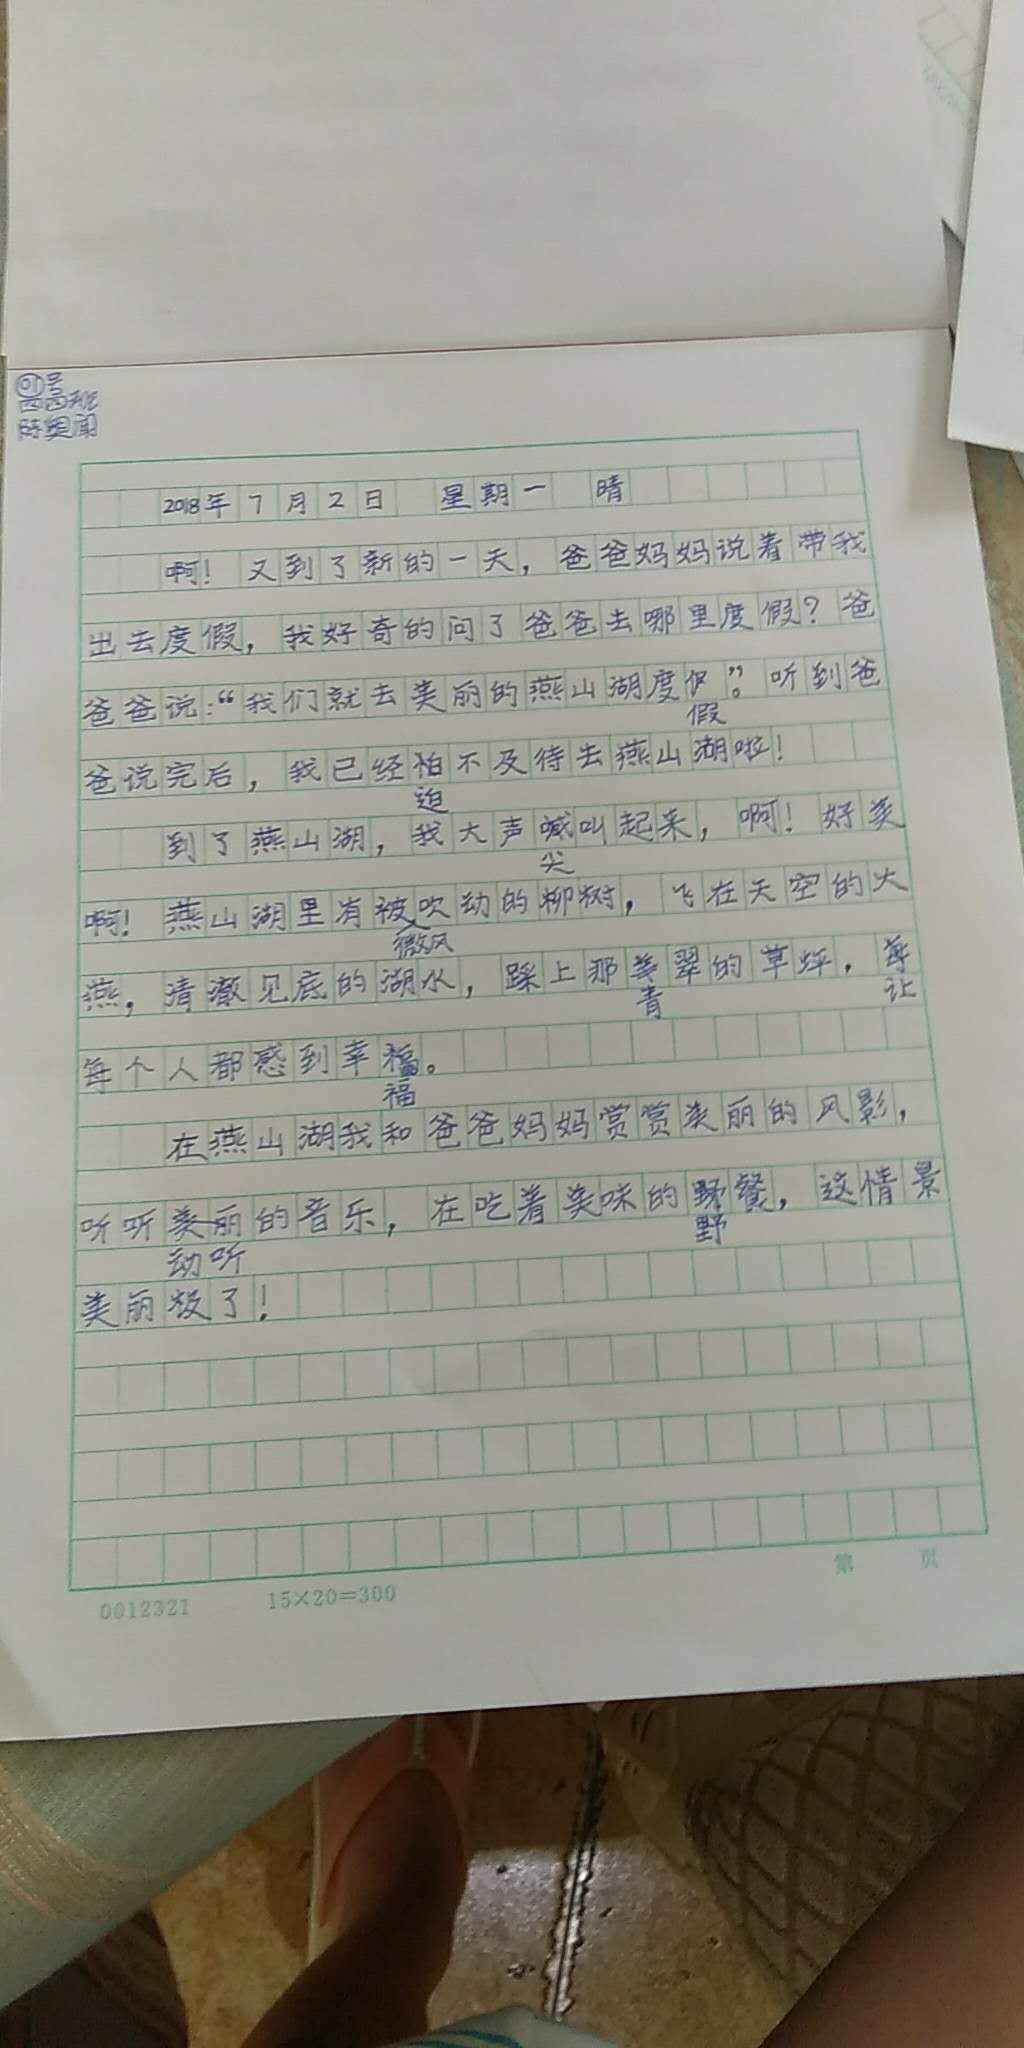 01号
四四班
陈奥闻
2018年7月2日 星期一 晴
啊!又到了新的一天,爸爸妈妈说着带我
出去度假,我好奇的问了爸爸去哪里度假?爸
爸爸说:“我们就去美丽的燕山湖度。”听到爸
假
爸说完后,我已经怕不及待去燕山湖啦!
迫
到了燕山湖,我大声喊叫起来,啊!好美
尖
啊!燕山湖里有被吹动的柳树,飞在天空的大
微风
燕,清澈见底的湖水,踩上那美翠的草坪,每
青 让
每个人都感到幸福。
福
在燕山湖我和爸爸妈妈赏赏美丽的风影,
听听美丽的音乐,在吃着美味的野餐,这情景
动听 野
美丽极了!
0012321 15×20=300 第 页